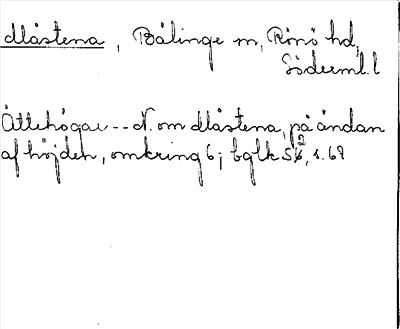 Måstena, Bälinge sn, Rönö hd,
Söderml. l
Ättehögar -- N. om Måstena, på ändan
af höjden, omkring 6; bglk 52, s. 69